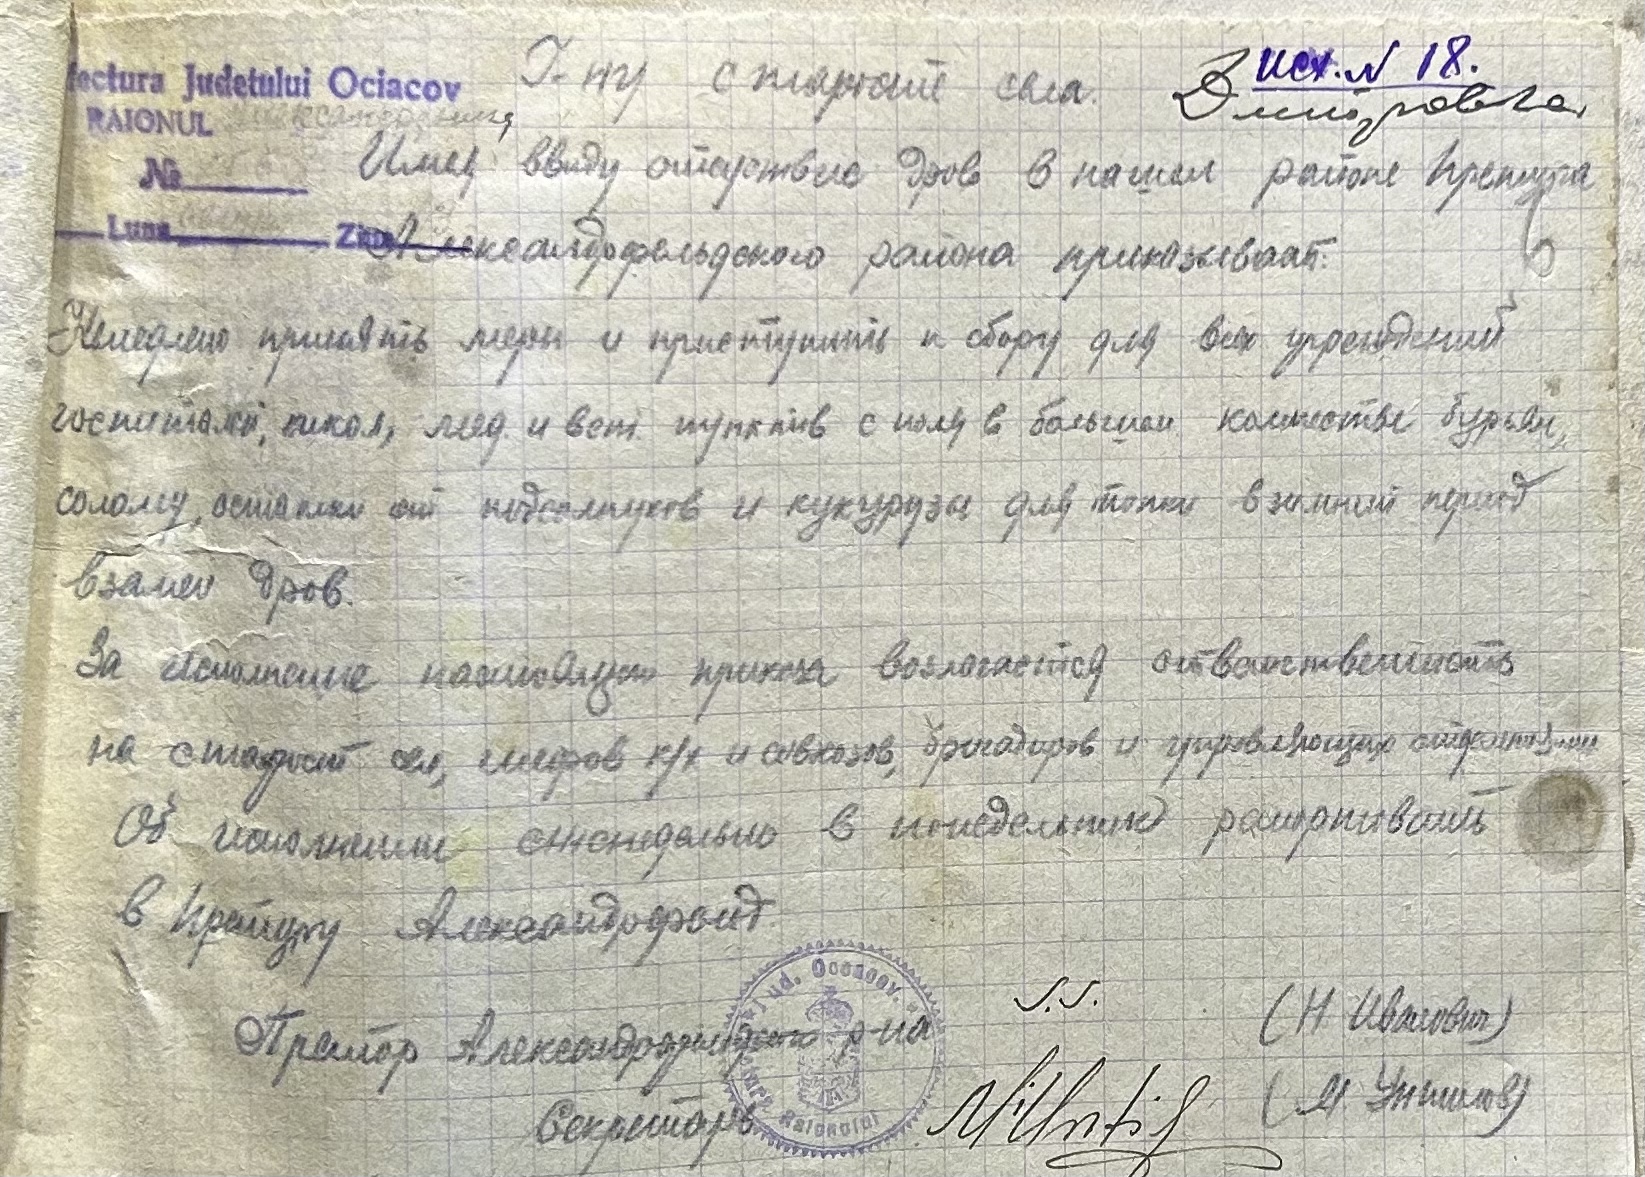 fectura Judetului Ociacov
RAIONUL
№
Luna Ziua
Г-ну старосте села.
исх. N 18.
Дмитровка
Имея ввиду отсутствие дров в нашем районе Претура
Александрфельдского района приказывает:
Немедлено принять меры и приступить к сбору для всех учреждений
госпиталей, школ, мед. и вет. пунктов с поля в большом количестве бурьян,
солому, остатки от подсолнухов и кукурузы для топки в зимний период
взамен дров.
За исполнение настоящего приказа возлагается ответственность
на старост сел, шефов к/х и совхозов, бригадиров и управляющих
Об исполнении еженедельно в понедельник рапортовать
в Претуру Александрфельд.
Претор Александрфельдского р-на (Н. Иванович)
Секретарь (М.
Jud. Oceacov.
Raionului